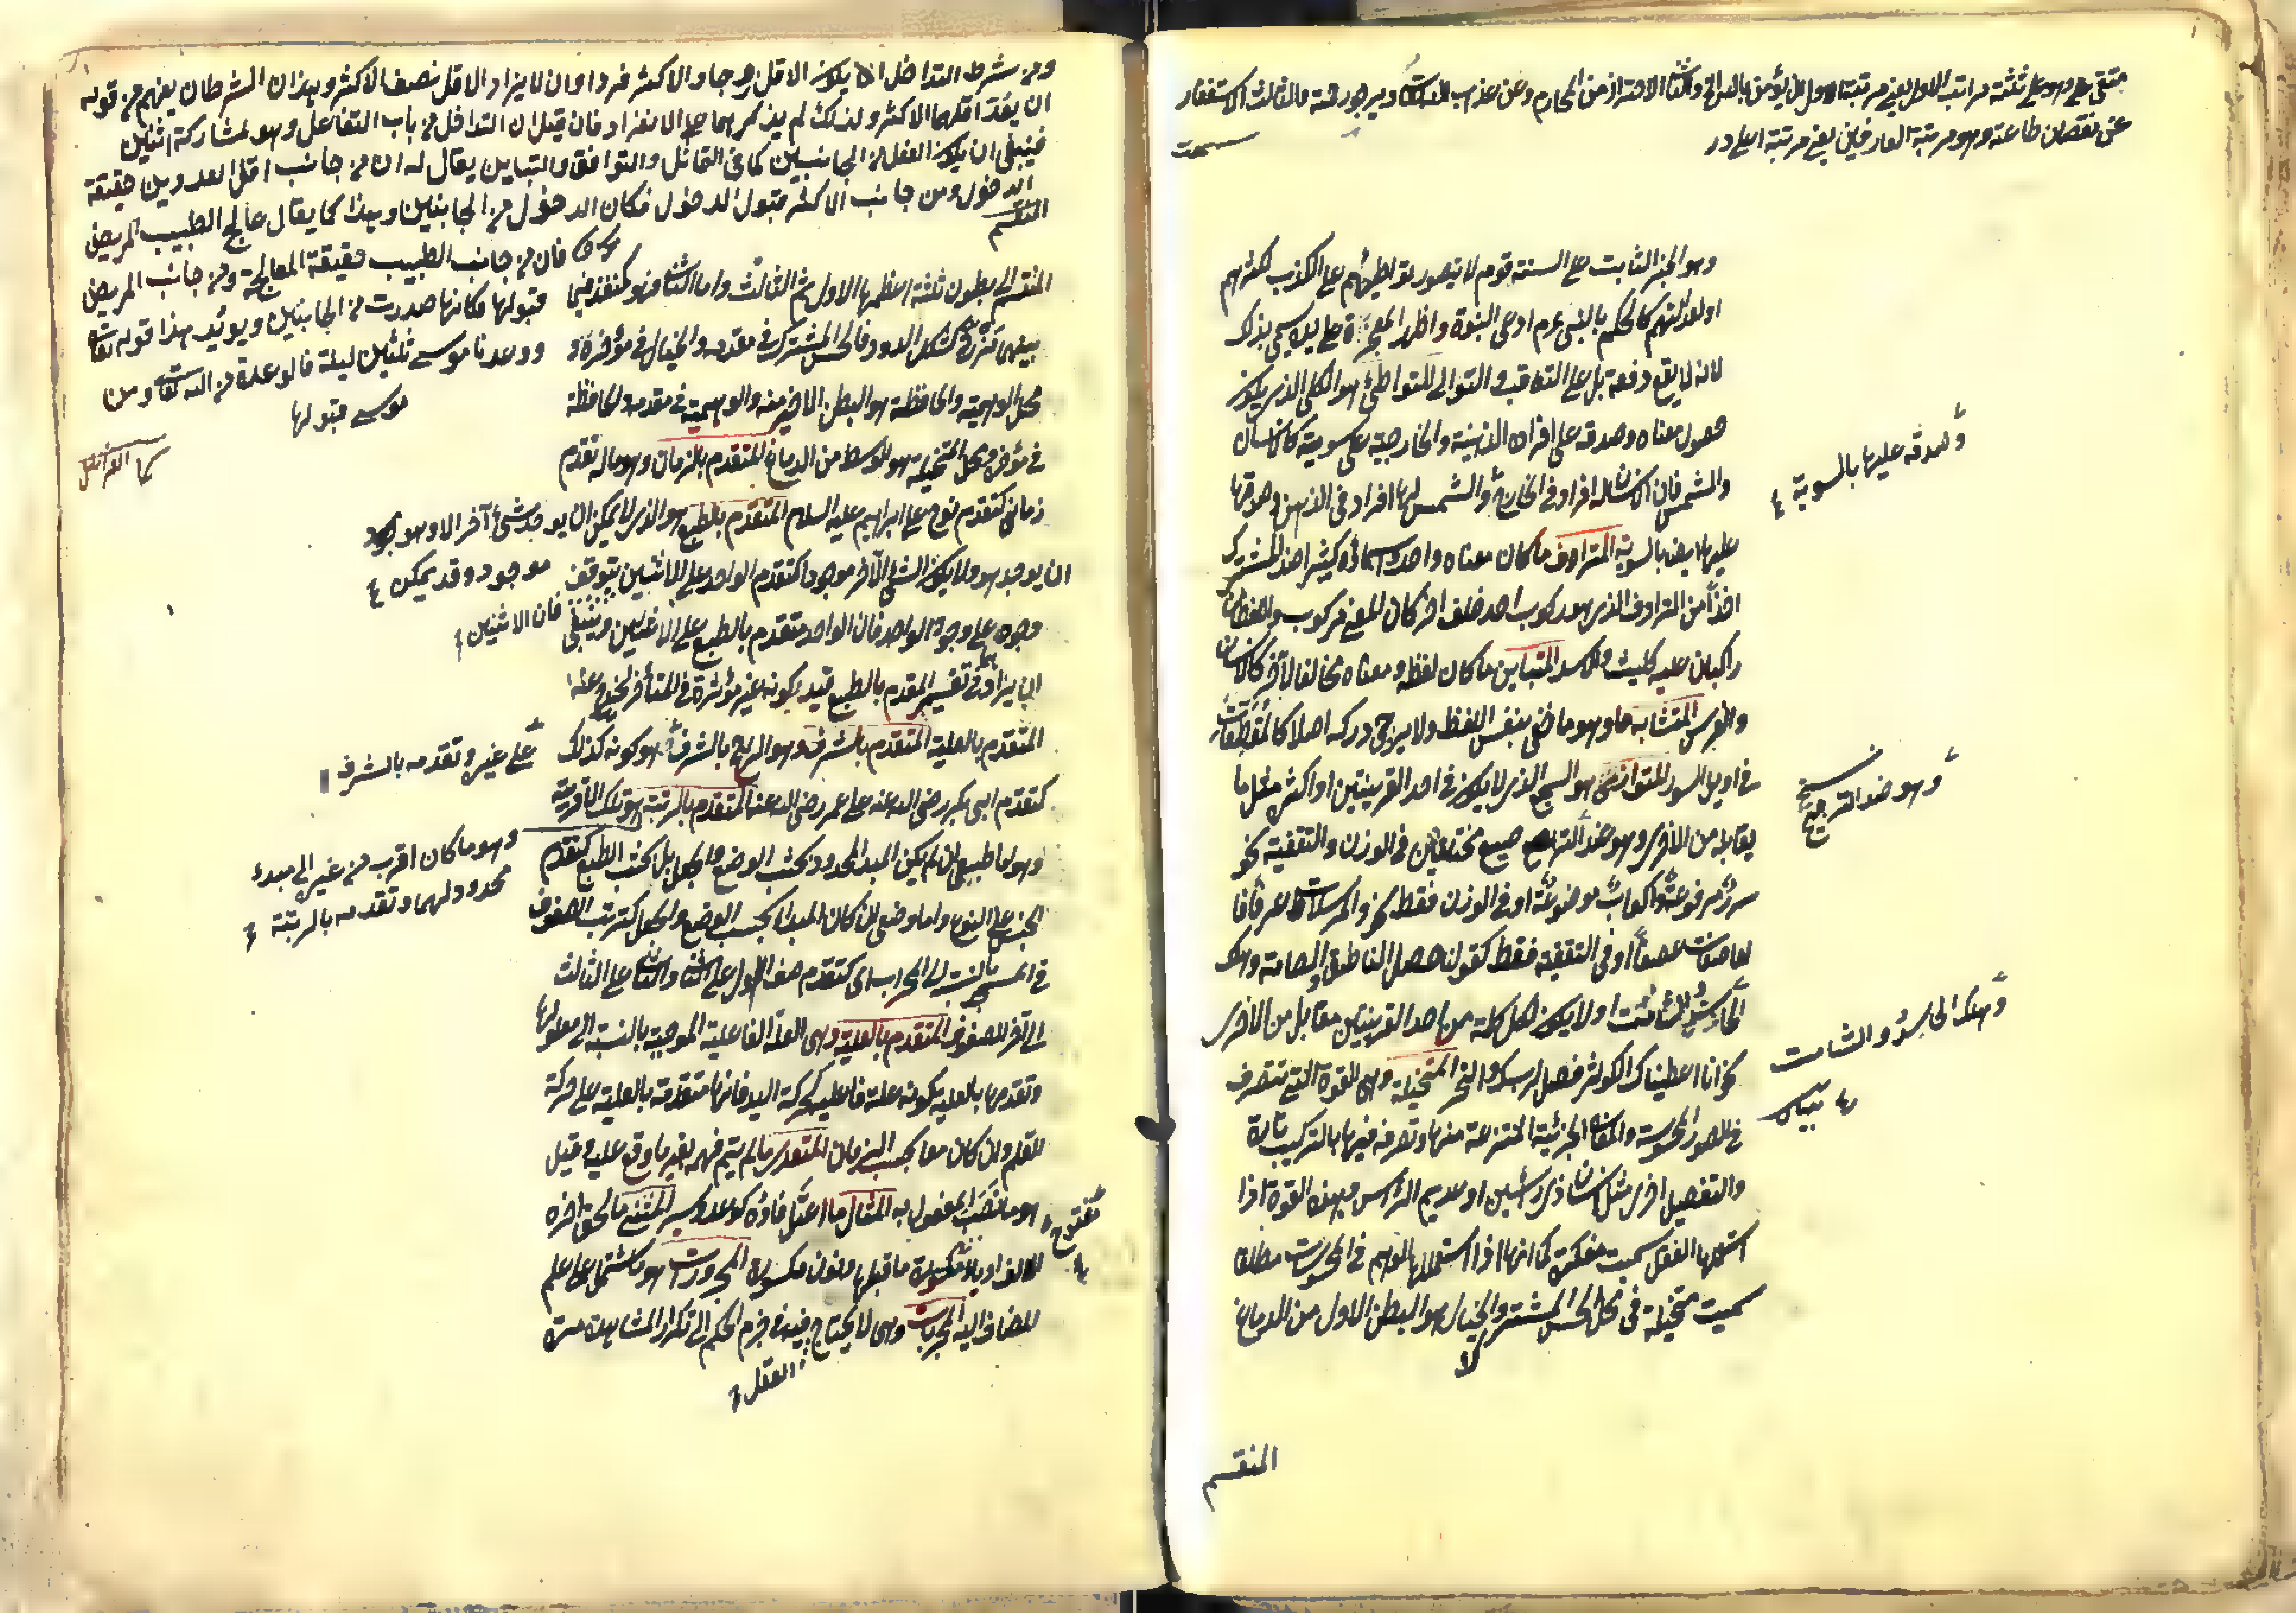 متقي على وهو على ثلثة مراتب الاول يعني مرتبة الاول ان يؤمن بالله الاحتراز من المحارم وعن عذاب ويرجو رحمته والثالث الاستغفار
عن نقصان طاعته وهو مرتبة العارفين يعني مرتبة اعلى در
وهو الخبر الثابت على السنة قوم لا يتصور تواطئهم على الكذب لكثرتهم
او لعدالتهم كالحكم بان النبي عم ادعى النبوة واظهر المعجزة على يده سمي بذلك
لانه لا يقع دفعة بل على التعاقب والتوالي المتواطئ هو الكلي الذي يكون
حصول معناه وصدقه على افراده الذهنية والخارجية على سوية كالانسان
والشمس فان الانسان له افراد في الخارج والشمس لها افراد في الذهن وصدقها
وصدقه عليها بالسوية
عليها ايضا بالسوية المترادف ما كان معناه واحدا واسماؤه كثيرة ضد المشترك
اخذا من الترادف الذي هو ركوب احد خلف اخر كان المعنى مركوب واللفظان
راكبان عليه كليث والاسد المتباين ما كان لفظه ومعناه مخالفا لآخر كالانسان
والفرس المتشابه هو ما خفي بنفس اللفظ ولا يرجى دركه اصلا كالمقطعات
في اوايل السور المتوازي هو السجع الذي لا يكون في احد القرينتين او اكثر مثل ما
وهو ضد الترصيع
يقابله من الاخرى وهو ضد الترصيع مختلفين في الوزن والتقفية نحو
سرر مرفوعة واكواب موضوعة او في الوزن فقط نحو والمرسلات عرفا فا
لعاصفات عصفا او في التقفية فقط كقولنا حصل الناطق والصامت وهلك
الحاسد والشامت او لا يكون لكل كلمة من احد القرينتين مقابل من الاخرى
وهلك الحاسد والشامت
نحو انا اعطيناك الكوثر فصل لربك وانحر المتخيلة وهي القوة التي تتصرف
في الصور المحسوسة والمعاني الجزئية المنتزعة منها وتصرفه فيها بالتركيب تارة
والتفصيل اخرى مثل انسان ذي رأسين او عديم الرأس وهذه القوة اذا
استعملها العقل سميت مفكرة كما انها اذا استعملها الوهم في المحسوسات مطلقا
سميت متخيلة في محل الحس المشترك والخيال هو البطن الاول من الدماغ
المنقسم
ومن شرط التداخل ان يكون الاقل زوجا والاكثر فردا وان لا يزاد الاقل نصف الاكثر وهذان الشرطان يفهم من قوله
ان يعد اقلهما الاكثر ولذلك لم يذكرهما على الانفراد فان قيل ان التداخل من باب التفاعل وهو لمشاركة اثنين
فينبغي ان يكون الفعل من الجانبين كما في التماثل والتوافق والتباين يقال له ان من جانب اقل العددين حقيقة
الدخول ومن جانب الاكثر قبول الدخول فكان الدخول من الجانبين وهذا كما يقال عالج الطبيب المريض
فان من جانب الطبيب حقيقة المعالجة ومن جانب المريض
قبولها فكانها صدرت من الجانبين ويؤيد هذا قوله تعالى
ووعدنا موسى ثلثين ليلة فالوعدة من الله تعالى ومن
موسى قبولها
كما الفرائض
المنقسم الى بطون ثلثة اعظمها الاول ثم الثالث واما الثاني فهو كمنفذ فيما
بينهما كشكل الدود فالحس المشترك في مقدمه والخيال في مؤخره و
محل الوهمية والحافظة هو البطن الاخير منه والوهمية في مقدمه والحافظة
في مؤخره ومحل المتخيلة هو الوسط من الدماغ المتقدم بالزمان وهو ما له تقدم
زماني كتقدم نوح على ابراهيم عليه السلام المتقدم بالطبع هو الذي لا يمكن ان يوجد شيء آخر الا وهو موجود
موجود وقد يمكن
ان يوجد هو ولا يكون الشيء الآخر موجودا كتقدم الواحد على الاثنين يتوقف
فان الاثنين
وجوده على وجود الواحد فان الواحد متقدم بالطبع على الاثنين وينبغي
ان يزاد في تفسير المقدم بالطبع قيد بكونه غير مؤثرة في المتأخر ليخرج عنه
المتقدم بالعلية المتقدم بالشرف وهو الراجح بالشرف وهو كونه كذلك
على غيره وتقدمه بالشرف
كتقدم ابي بكر رضي الله عنه على عمر رضي الله عنهما المتقدم بالرتبة هو تلك الاقربية
وهو ما كان اقرب من غيره الى مبدء
محدود لهما وتقدمه بالرتبة
وهو اما طبيعي ان لم يكن المبدأ المحدود بحسب الوضع والجعل بل بحسب الطبع كتقدم
الجنس على النوع واما وضعي ان كان المبدأ بحسب الوضع والجعل كترتب الصفوف
في المسجد بالنسبة الى المحراب اي كتقدم صف الاول على الثاني والثاني على الثالث
الى آخر الصفوف المتقدم بالعلية وهي العلة الفاعلية الموجبة بالنسبة الى معلولها
وتقدمها بالعلية بكونه علة فاعلية كحركة اليد فانها متقدمة بالعلية على حركة
القلم وان كان معا بحسب الزمان المتعدي ما لم يتم فهمه بغير ما وقع عليه وقيل
هو ما نصب المفعول به المثال ما اعتل فاؤه كوعد ويسر المثنى ما لحق اخره
مفتوح
الف او ياء ما قبلها ونون مكسورة المجرورات هو ما اشتمل على علم
المضاف اليه المجربات وهي لا يحتاج فيه في جزم الحكم الى تكرار المشاهدة مرة
العقل